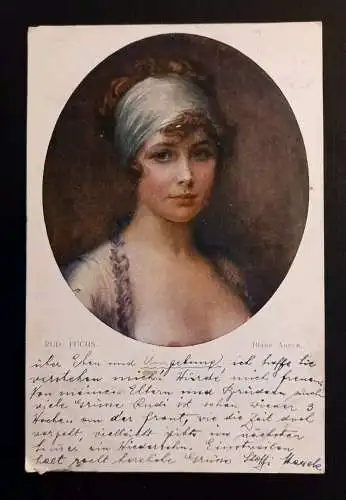 RUD. FUCHS.
Blaue Augen.
über Eben und Umgebung, ich hoffe Sie
verstehen mich. Würde mich freuen
Von meinen Eltern und
viele Grüße. Rudi ist schon wieder 3
Wochen an der Front, wo die Zeit doch
vergeht, vielleicht gibts im nächsten
ein Wiedersehn. Einstweilen
recht herzliche Grüße Steffi